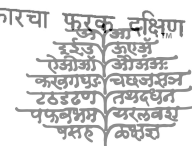 कारचा फरक दक्षिण
अ आ
इ ई उ ऊ ए ॲ
ऐ ओ औ ऑ अं अः
क ख ग घ ङ च छ ज झ ञ
ट ठ ड ढ ण त थ द ध न
प फ ब भ म य र ल व श
ष स ह ळ क्ष ज्ञ